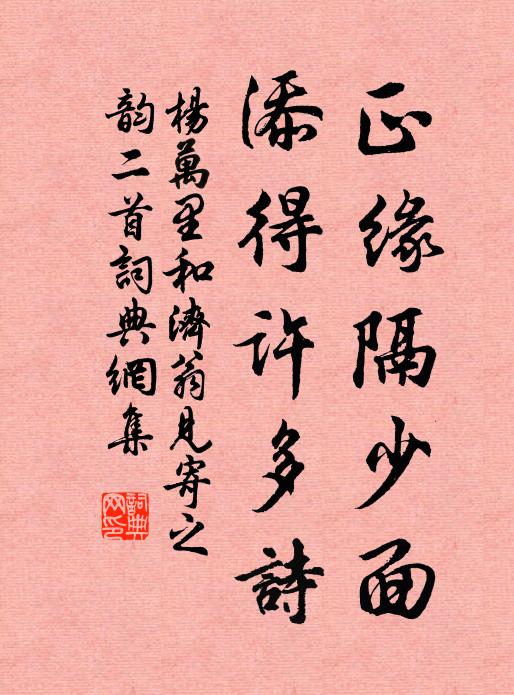 正缘隔少面
添得許多詩
楊萬里和濟翁見寄之
韵二首詞典網集
詞典網印